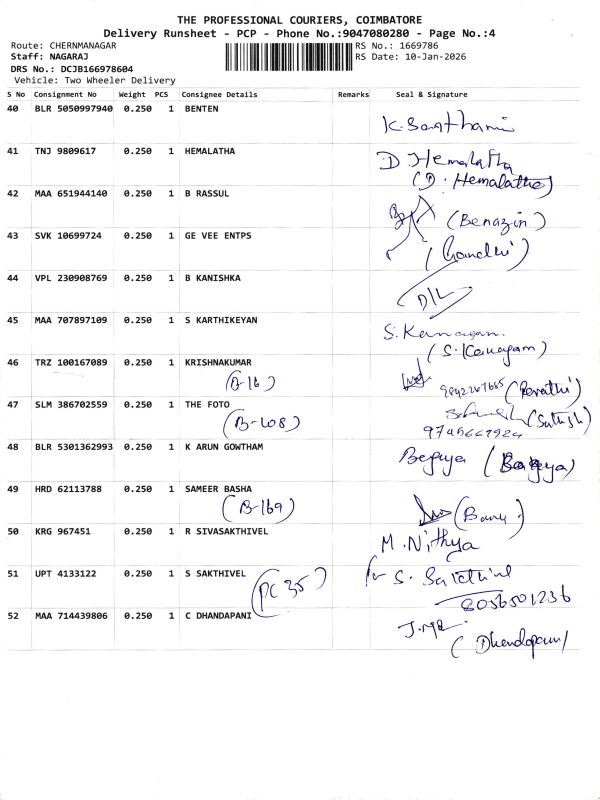 THE PROFESSIONAL COURIERS, COIMBATORE
Delivery Runsheet - PCP - Phone No.:9047080280 - Page No.:4
Route: CHERNMANAGAR RS No.: 1669786
Staff: NAGARAJ RS Date: 10-Jan-2026
DRS No.: DCJB166978604
Vehicle: Two Wheeler Delivery
S No Consignment No Weight PCS Consignee Details Remarks Seal & Signature
40 BLR 5050997940 0.250 1 BENTEN
41 TNJ 9809617 0.250 1 HEMALATHA D. Hemalatha
(D. Hemalatha)
42 MAA 651944140 0.250 1 B RASSUL
(Benazin)
43 SVK 10699724 0.250 1 GE VEE ENTPS
(Gandhi)
44 VPL 230908769 0.250 1 B KANISHKA
D/L
45 MAA 707897109 0.250 1 S KARTHIKEYAN S. Kanagam.
(S. Kanagam)
46 TRZ 100167089 0.250 1 KRISHNAKUMAR
(B-16) (Revathi)
47 SLM 386702559 0.250 1 THE FOTO
(B-108) (Sathish)
48 BLR 5301362993 0.250 1 K ARUN GOWTHAM
49 HRD 62113788 0.250 1 SAMEER BASHA
(B-169) (Banu)
50 KRG 967451 0.250 1 R SIVASAKTHIVEL M. Nithya
51 UPT 4133122 0.250 1 S SAKTHIVEL
(PC 35) 8056501236
52 MAA 714439806 0.250 1 C DHANDAPANI
(Dhandapani)